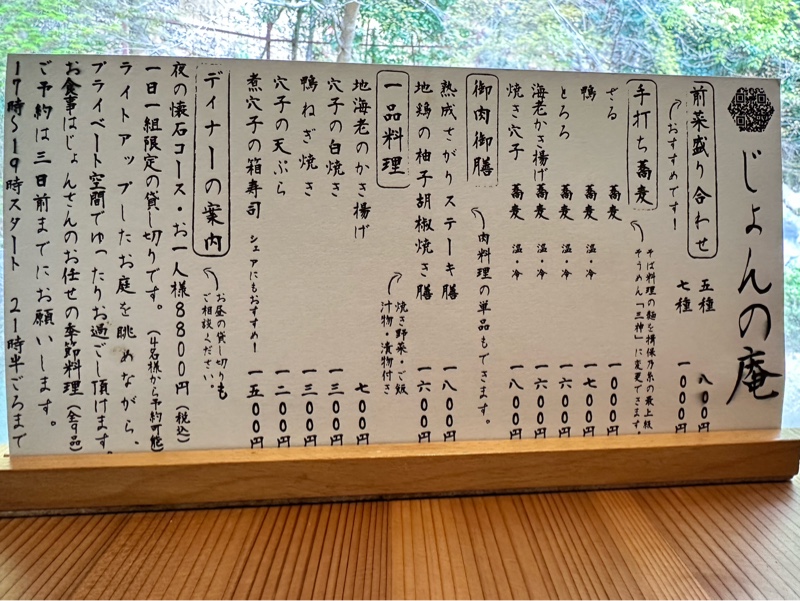 じょんの庵
前菜盛り合わせ
おすすめです!
五種 八〇〇円
七種 一〇〇〇円
手打ち蕎麦
そば料理の麺を揖保乃糸の最上級
そうめん「三神」に変更できます。
ざる 蕎麦 一〇〇〇円
鴨 蕎麦 温・冷 一七〇〇円
とろろ 蕎麦 温・冷 一六〇〇円
海老かき揚げ 蕎麦 温・冷 一六〇〇円
焼き穴子 蕎麦 温・冷 一八〇〇円
御肉御膳
肉料理の単品もできます。
熟成さがりステーキ膳 一八〇〇円
地鶏の柚子胡椒焼き膳 一六〇〇円
焼き野菜・ご飯
汁物・漬物付き
一品料理
地海老のかき揚げ 七〇〇円
穴子の白焼き 一三〇〇円
鴨ねぎ焼き 一三〇〇円
穴子の天ぷら 一二〇〇円
煮穴子の箱寿司 シェアにもおすすめ! 一五〇〇円
ディナーの案内
お昼の貸し切りも
ご相談ください。
夜の懐石コース・お一人様8800円(税込)
一日一組限定の貸し切りです。(4名様から予約可能)
ライトアップしたお庭を眺めながら、
プライベート空間でゆったりお過ごし頂けます。
お食事はじょんさんのお任せの季節料理(全9品)
ご予約は三日前までにお願いします。
17時〜19時スタート 21時半ごろまで